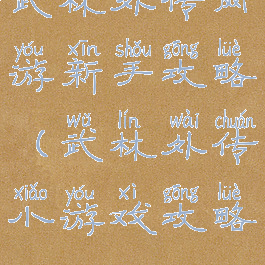 武林外传
yóu xīn shǒu gōng lüè
游新手攻略
wǔ lín wài chuán
(武林外传
xiǎo yóu xì gōng lüè
小游戏攻略